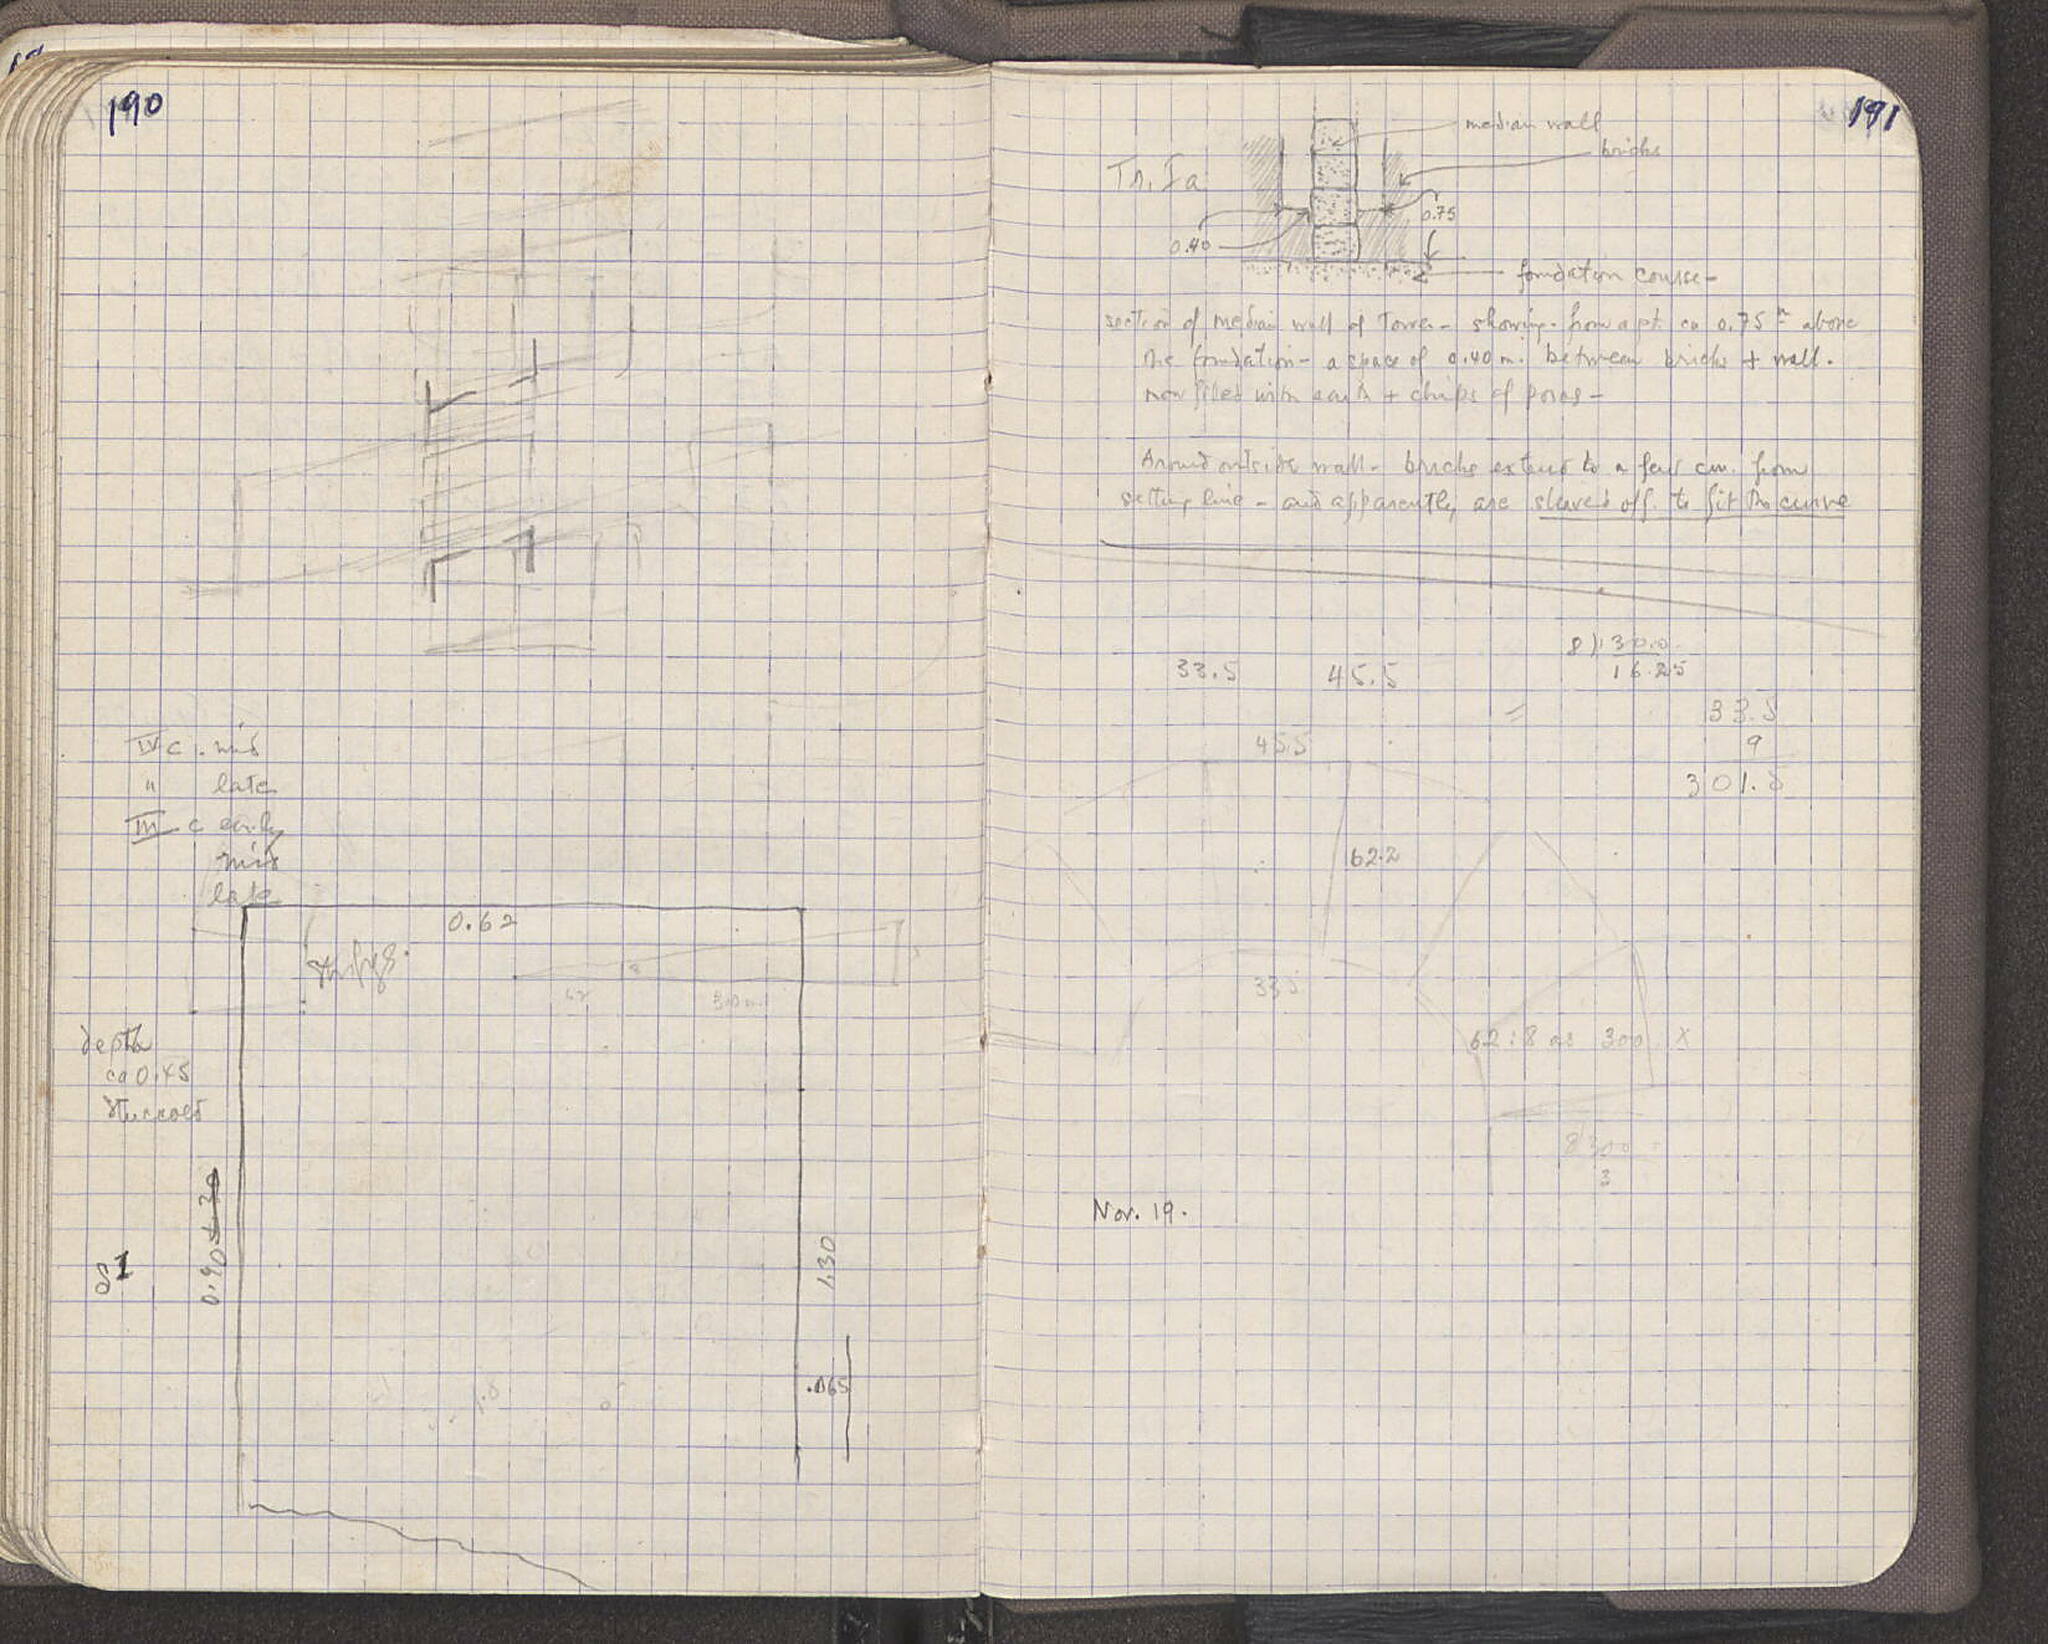 190
IV c. mid
" late
III c early
mid
late
0.62
depth
ca 0.45
stuccoed
0.90 1.30
1.30
.065
191
median wall
bricks
Tr. Ia
0.75
0.40
foundation course -
section of median wall of Tower - showing - from a pt. ca 0.75 m above
the foundation - a space of 0.40 m. between bricks + wall.
now filled with earth + chips of poros -
Around outside wall - bricks extend to a few cm. from
setting line - and apparently are sleaved off to fit the curve
8)130.0
16.25
33.5 45.5
33.5
9
301.5
45.5
62.2
33.5
62:8 as 300 X
8 300
3
Nov. 19.